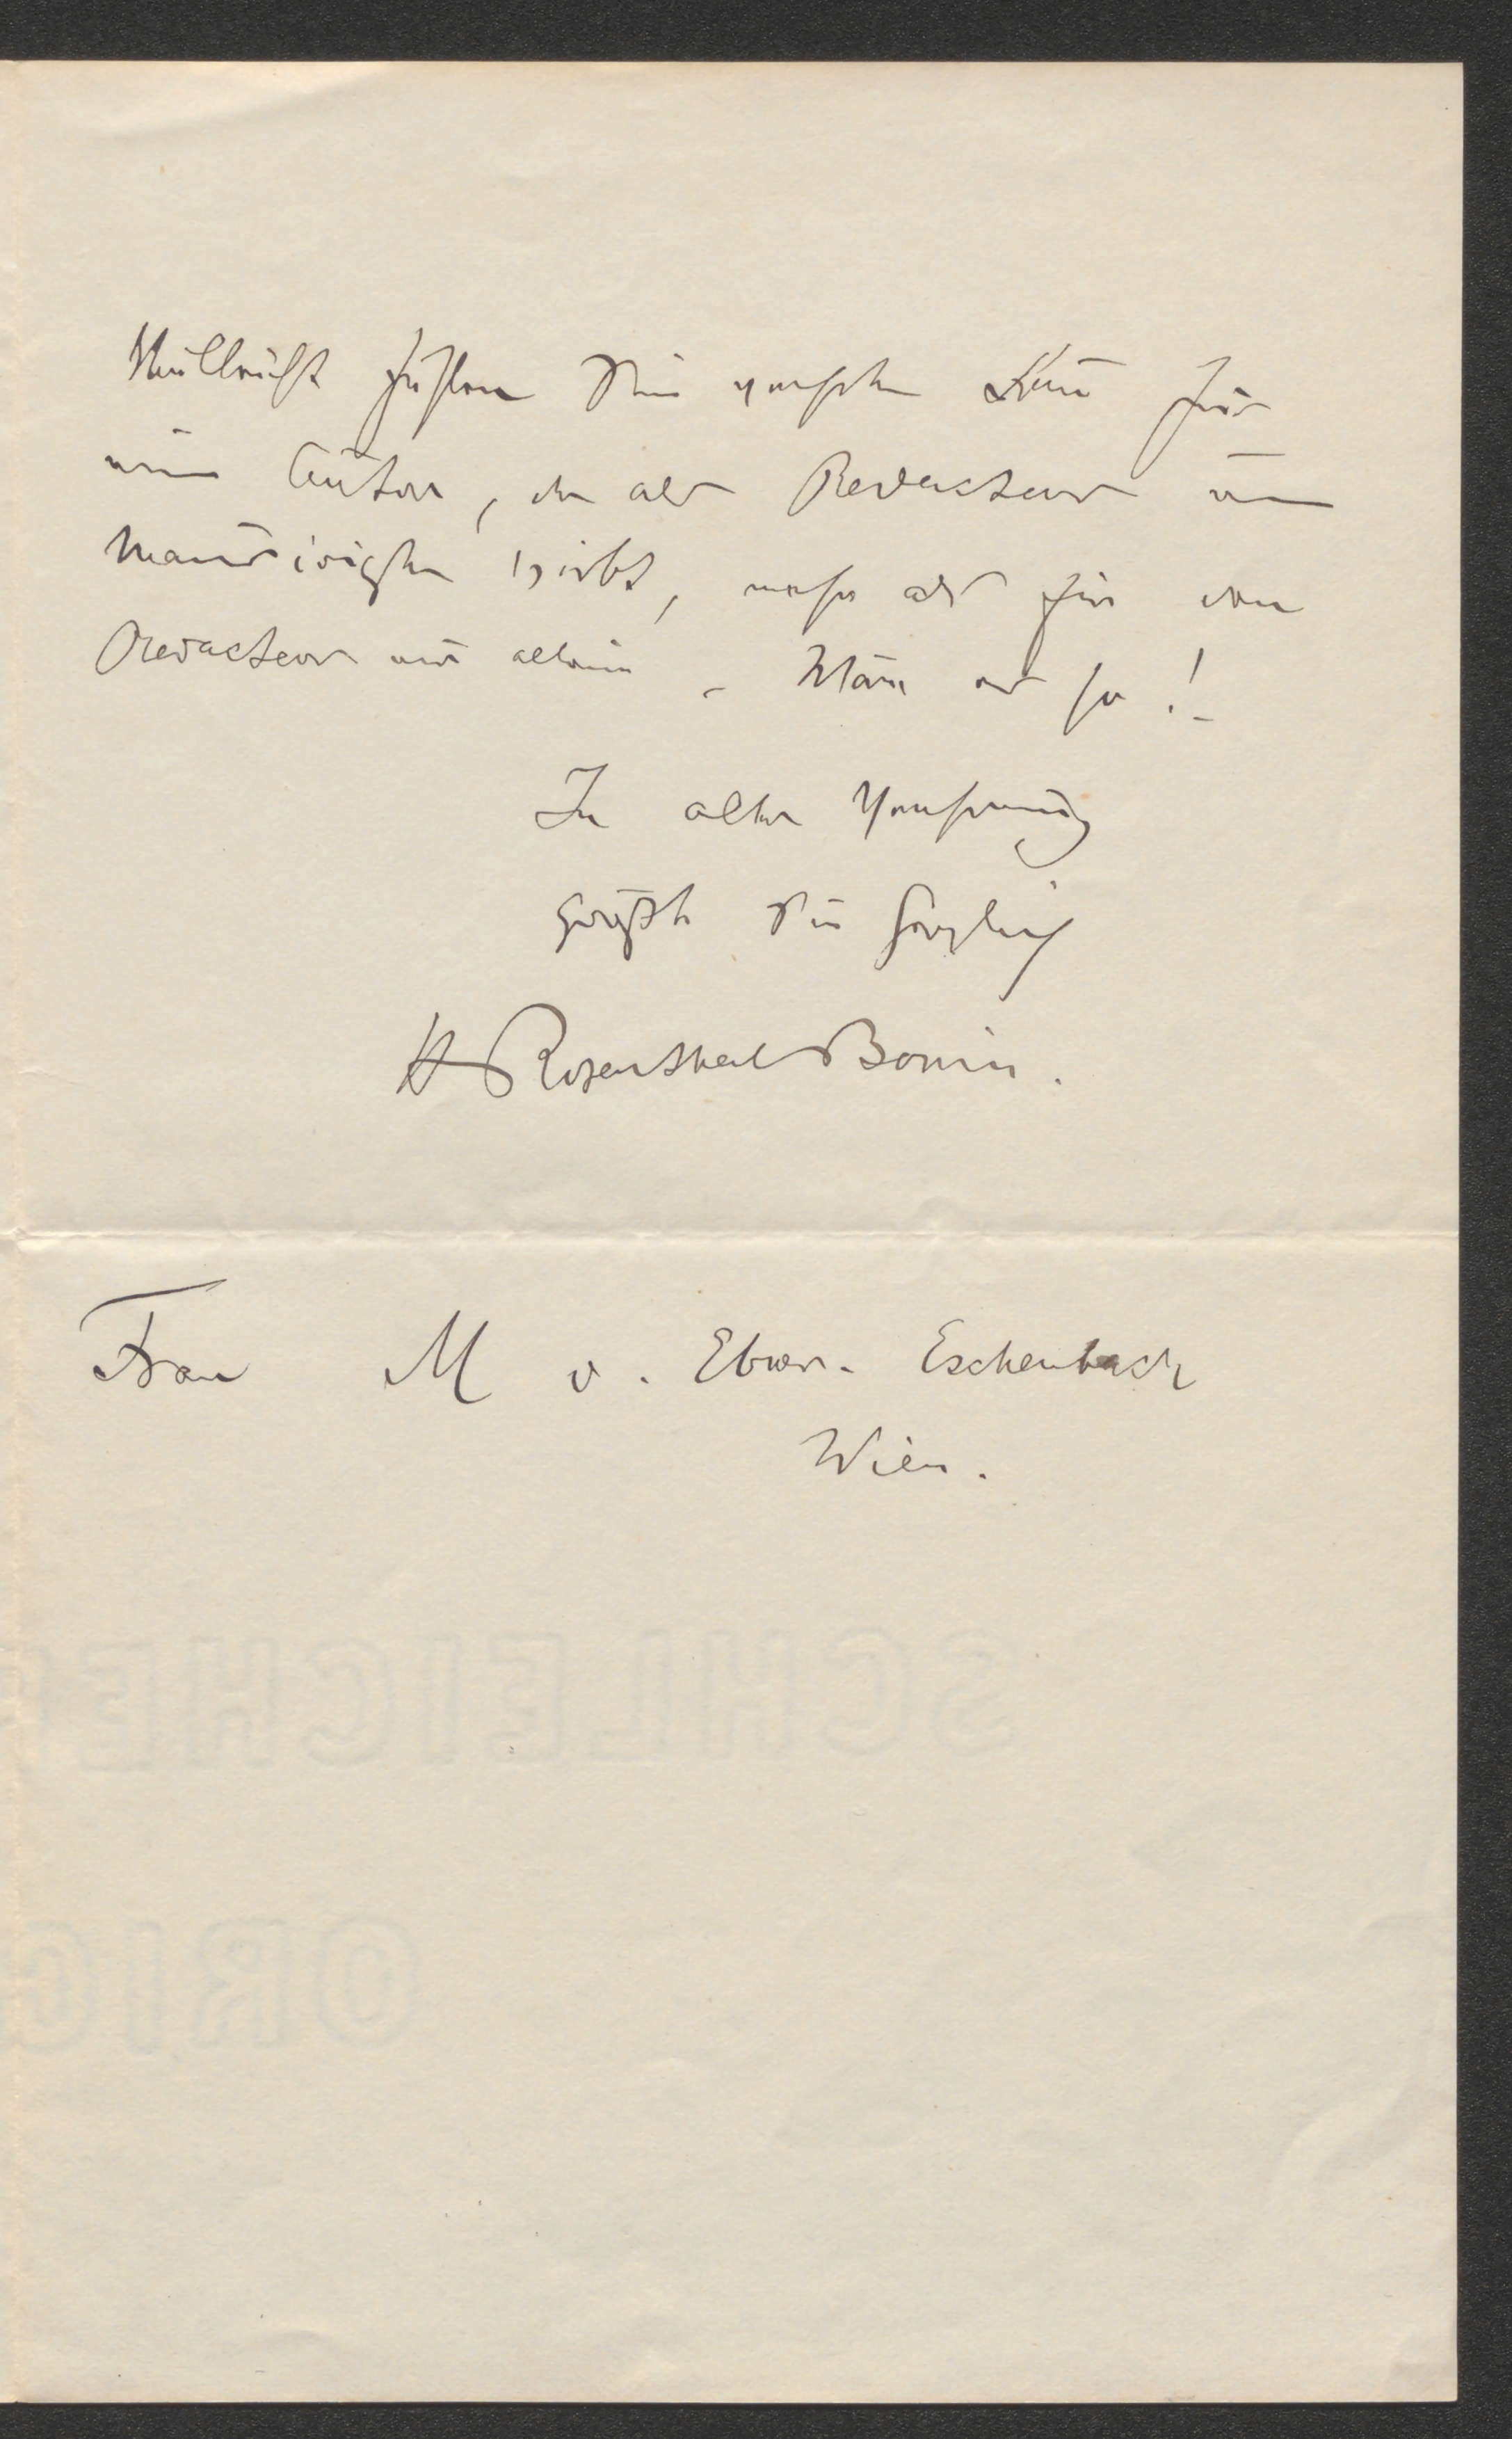 Vielleicht fühlen Sie verehrte Frau für
einen Autor, der als Redacteur um
wirbt, mehr als für den
Redacteur nur allein – Wäre es so! –
In alter Verehrung
grüßt Sie herzlich
H Rosenthal-Bonin.
Frau M v. Ebner-Eschenbach
Wien.
SCHLEICHE
ORIG